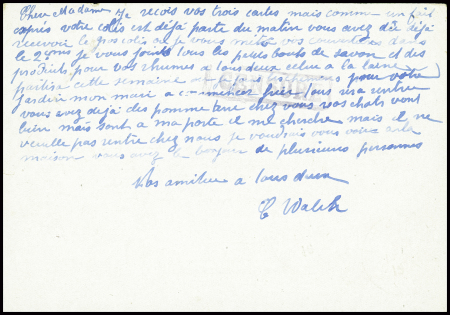 Chère Madame je recois vos trois cartes mais comme un fait
après votre colis est déjà parti du matin vous avez dû déjà
recevoir le gros colis et je vous mets vos couvertures dans
le 2e je vous joints tous les petits bouts de savon et des
produits pour vos rhumes a tous deux celui a la laine
partira cette semaine pour votre
jardin mon mari a commencer hier tous va rentrer
vous avez déjà des pomme terre chez vous vos chats vont
bien mais sont a ma porte il me cherche mais il ne
veuille pas rentre chez nous je voudrais vous voir a la
maison vous avez le bonjour de plusieurs personnes
Nos amitier a tous deux
C Walck